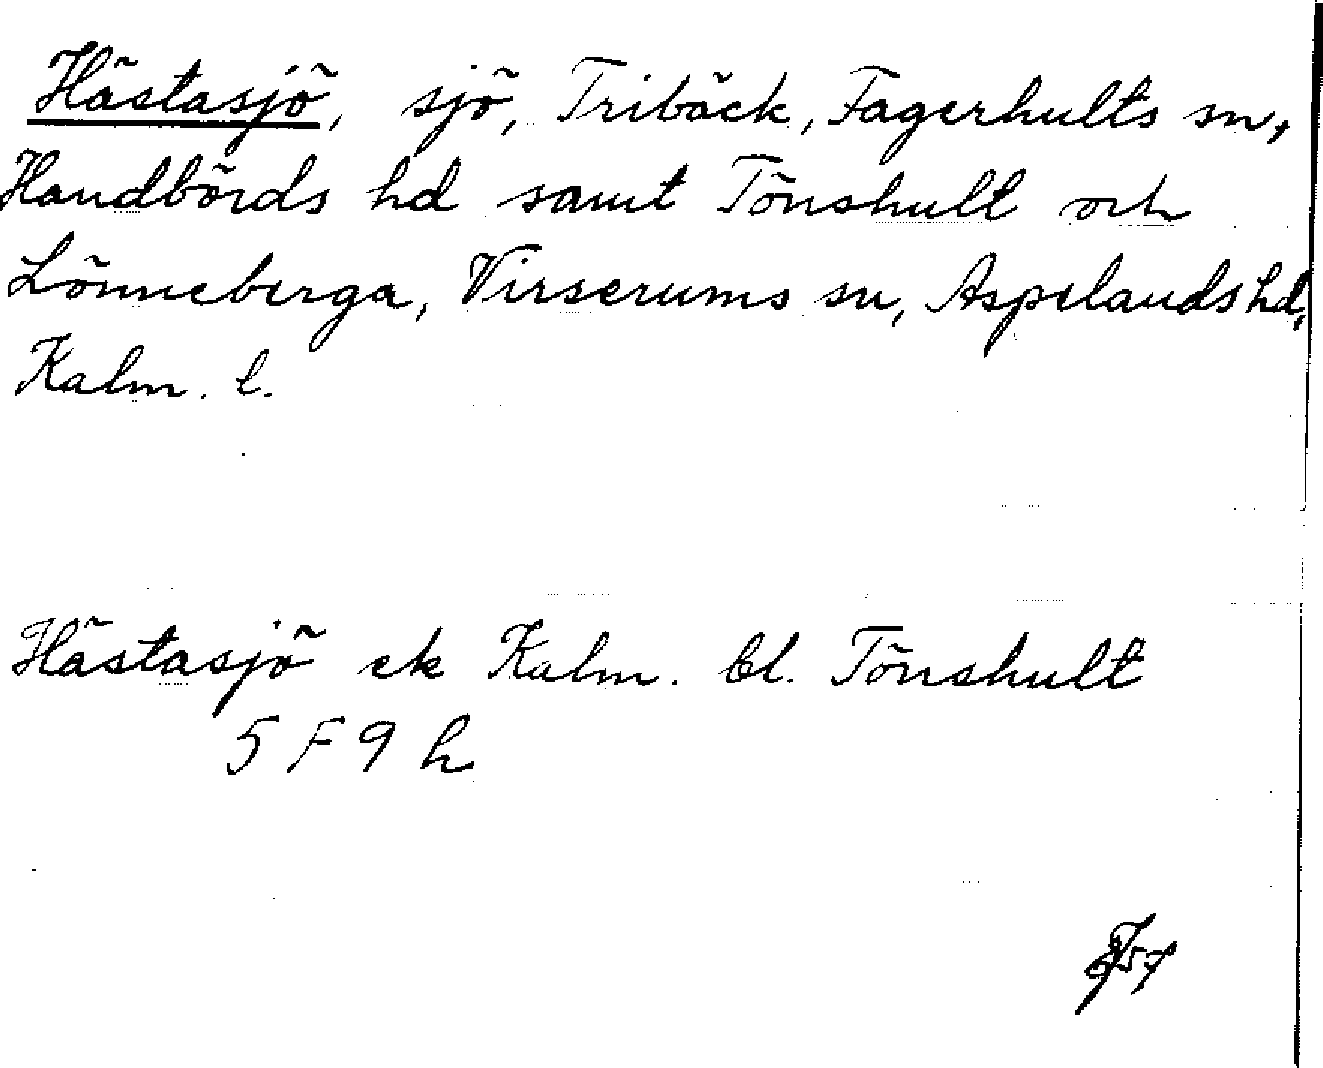 Hästasjö, sjö, Tribäck, Fagerhults sn,
Handbörds hd samt Tönshult och
Lönneberga, Virserums sn, Aspelands hd,
Kalm. l.
Hästasjö ek Kalm. bl. Tönshult
5 F 9 h